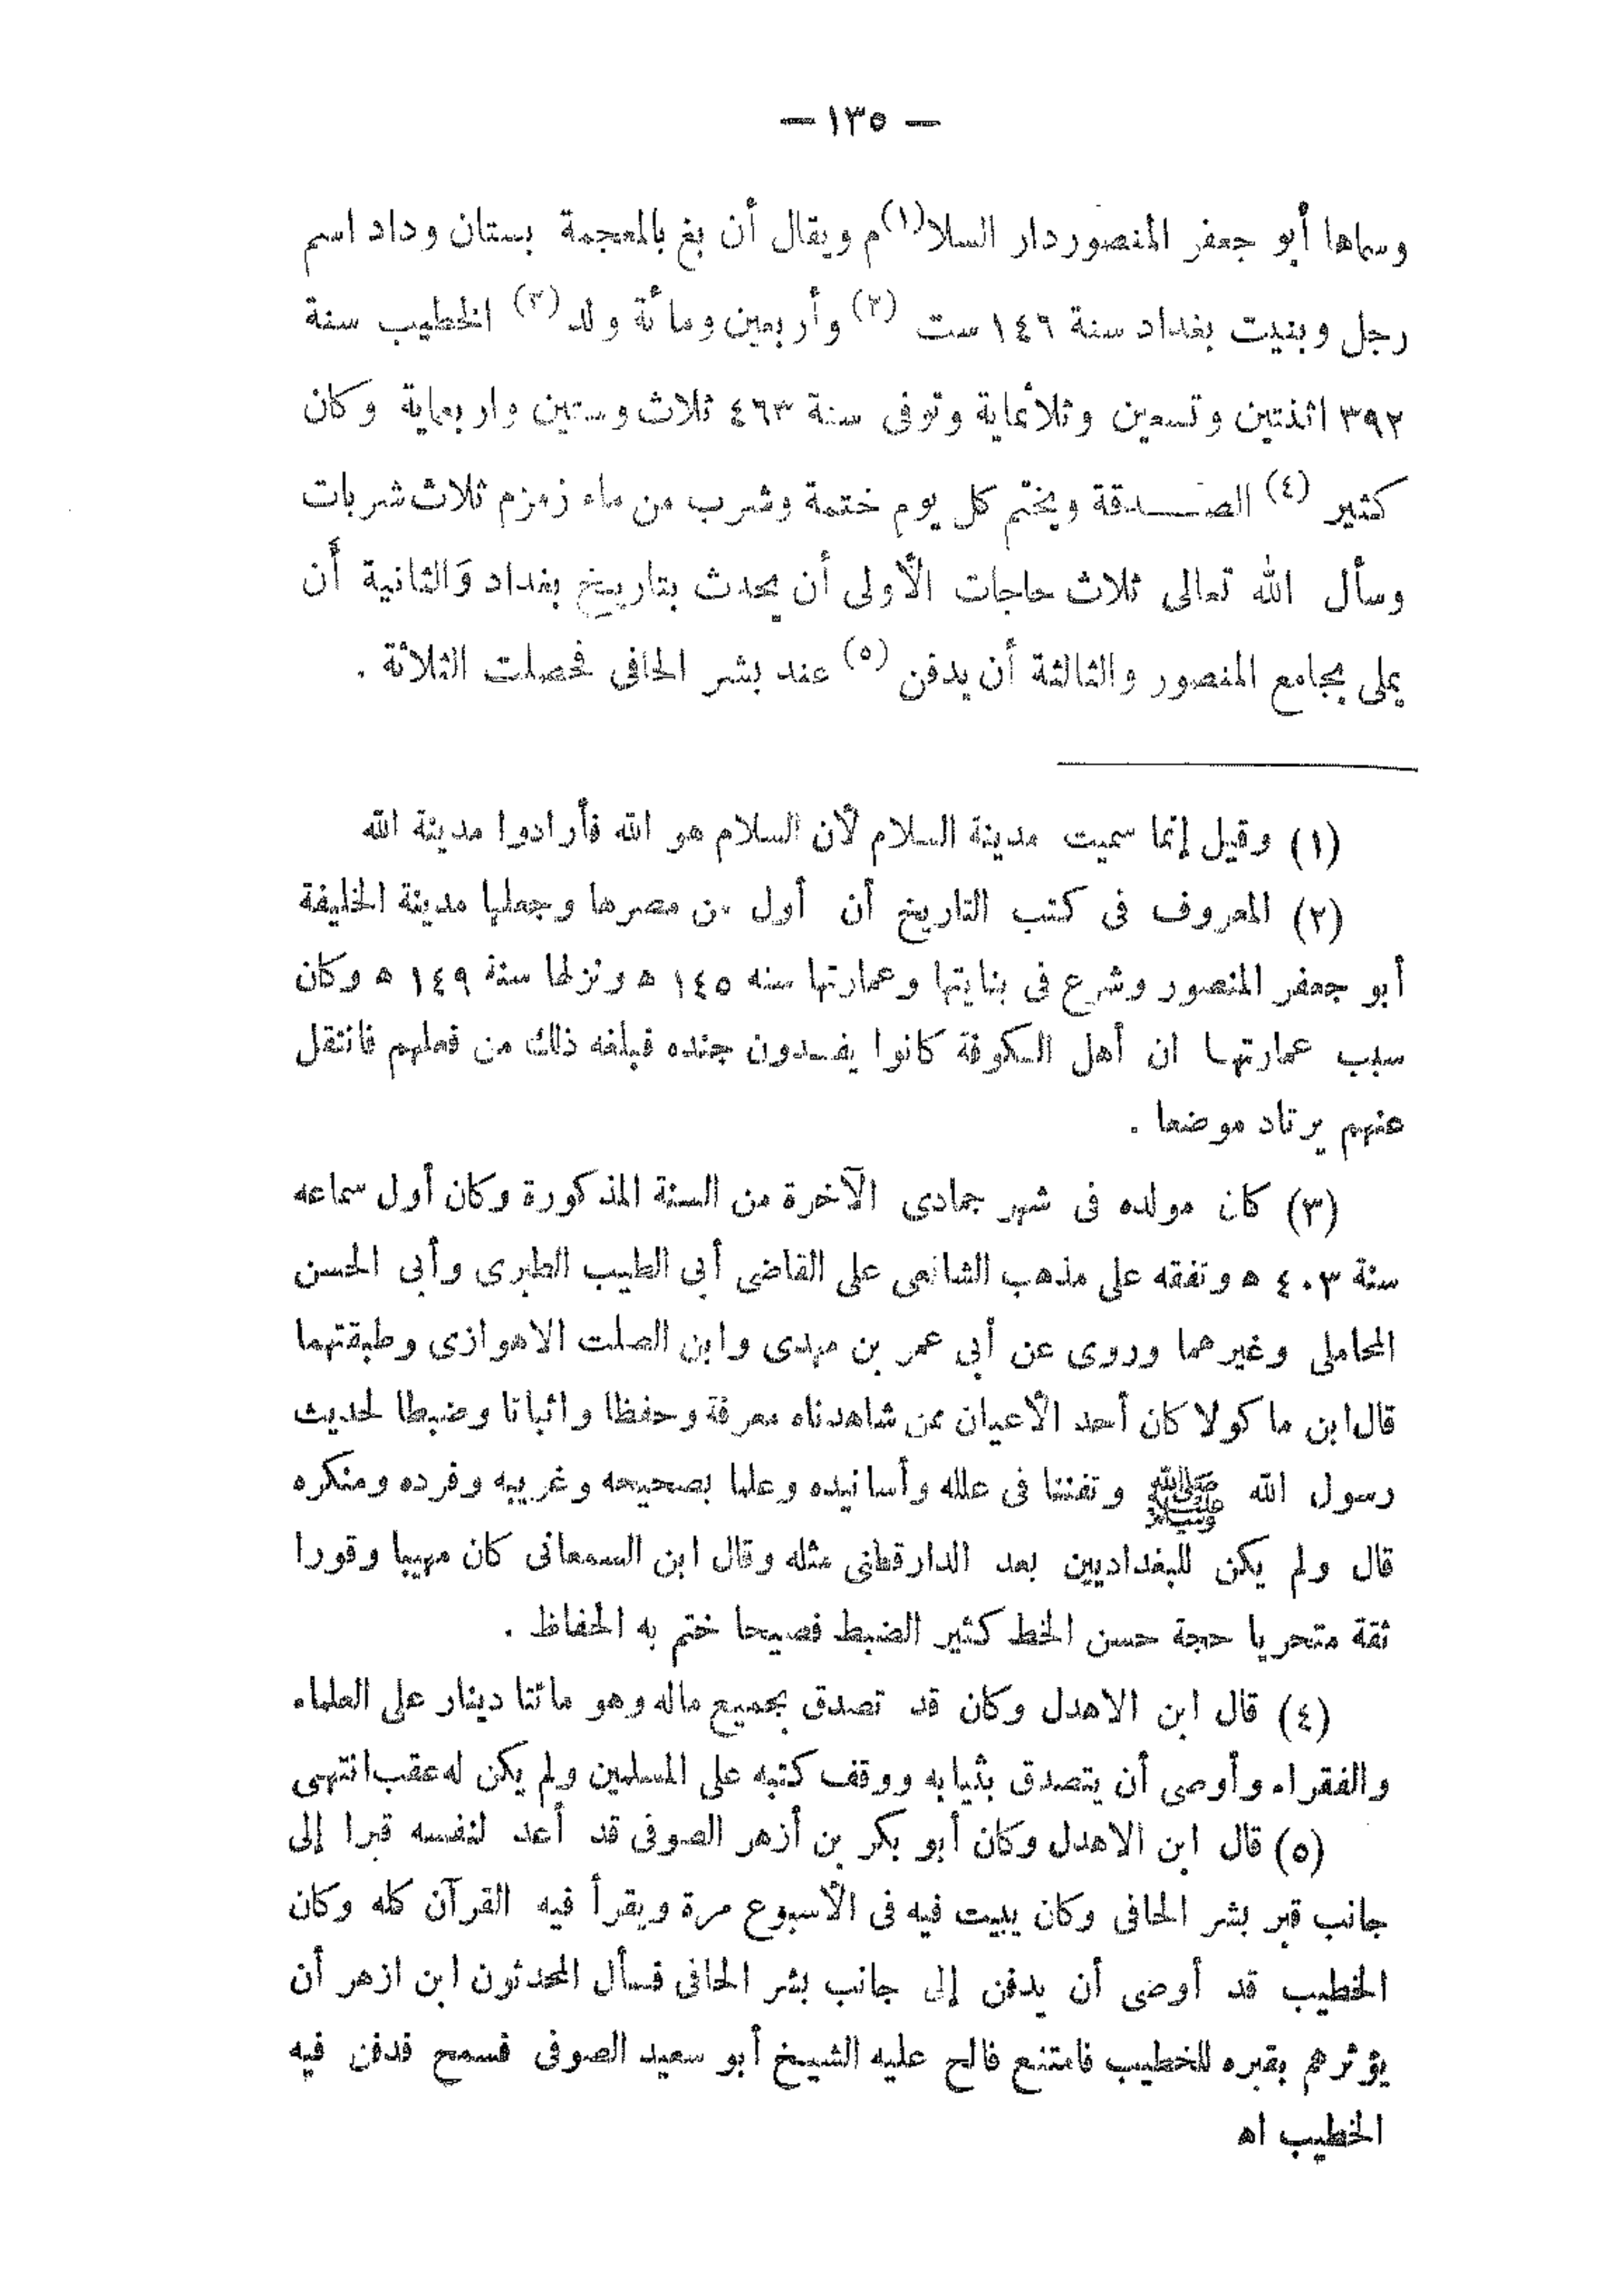 — ١٣٥ —
وسماها أبو جعفر المنصور دار السلا(١)م ويقال أن بغ بالمعجمة بستان وداد اسم
رجل وبنيت بغداد سنة ١٤٦ ست (٢) وأربعين ومائة ولد (٣) الخطيب سنة
٣٩٢ اثنتين وتسعين وثلاثماية وتوفى سنة ٤٦٣ ثلاث وستين واربعماية وكان
كثير (٤) الصدقة ويختم كل يوم ختمة وشرب من ماء زمزم ثلاث شربات
وسأل الله تعالى ثلاث حاجات الأولى أن يحدث بتاريخ بغداد وَالثانية أن
يملى بجامع المنصور والثالثة أن يدفن (٥) عند بشر الحافى فحصلت الثلاثة .
(١) وقيل إنما سميت مدينة السلام لأن السلام هو الله فأرادوا مدينة الله
(٢) المعروف فى كتب التاريخ أن أول من مصرها وجعلها مدينة الخليفة
أبو جعفر المنصور وشرع فى بنايتها وعمارتها سنه ١٤٥ ه ونزلها سنة ١٤٩ ه وكان
سبب عمارتها ان أهل الكوفة كانوا يفسدون جنده فبلغه ذلك من فعلهم فانتقل
عنهم يرتاد موضعا .
(٣) كان مولده فى شهر جمادى الآخرة من السنة المذكورة وكان أول سماعه
سنة ٤٠٣ ه وتفقه على مذهب الشافعى على القاضى أبى الطيب الطبرى وأبى الحسن
المحاملى وغيرهما وروى عن أبى عمر بن مهدى وابن الصلت الاهوازى وطبقتهما
قال ابن ماكولا كان أحد الأعيان ممن شاهدناه معرفة وحفظا واثباتا وضبطا لحديث
رسول الله ﷺ وتفننا فى علله وأسانيده وعلما بصحيحه وغريبه وفرده ومنكره
قال ولم يكن للبغداديين بعد الدارقطنى مثله وقال ابن السمعانى كان مهيبا وقورا
ثقة متحريا حجة حسن الخط كثير الضبط فصيحا ختم به الحفاظ .
(٤) قال ابن الاهدل وكان قد تصدق بجميع ماله وهو مائتا دينار على العلماء
والفقراء وأوصى أن يتصدق بثيابه ووقف كتبه على المسلمين ولم يكن له عقب انتهى
(٥) قال ابن الاهدل وكان أبو بكر بن أزهر الصوفى قد أعد لنفسه قبرا إلى
جانب قبر بشر الحافى وكان يبيت فيه فى الأسبوع مرة ويقرأ فيه القرآن كله وكان
الخطيب قد أوصى أن يدفن إلى جانب بشر الحافى فسأل المحدثون ابن ازهر أن
يؤثرهم بقبره للخطيب فامتنع فالح عليه الشيخ أبو سعيد الصوفى فسمح فدفن فيه
الخطيب اه